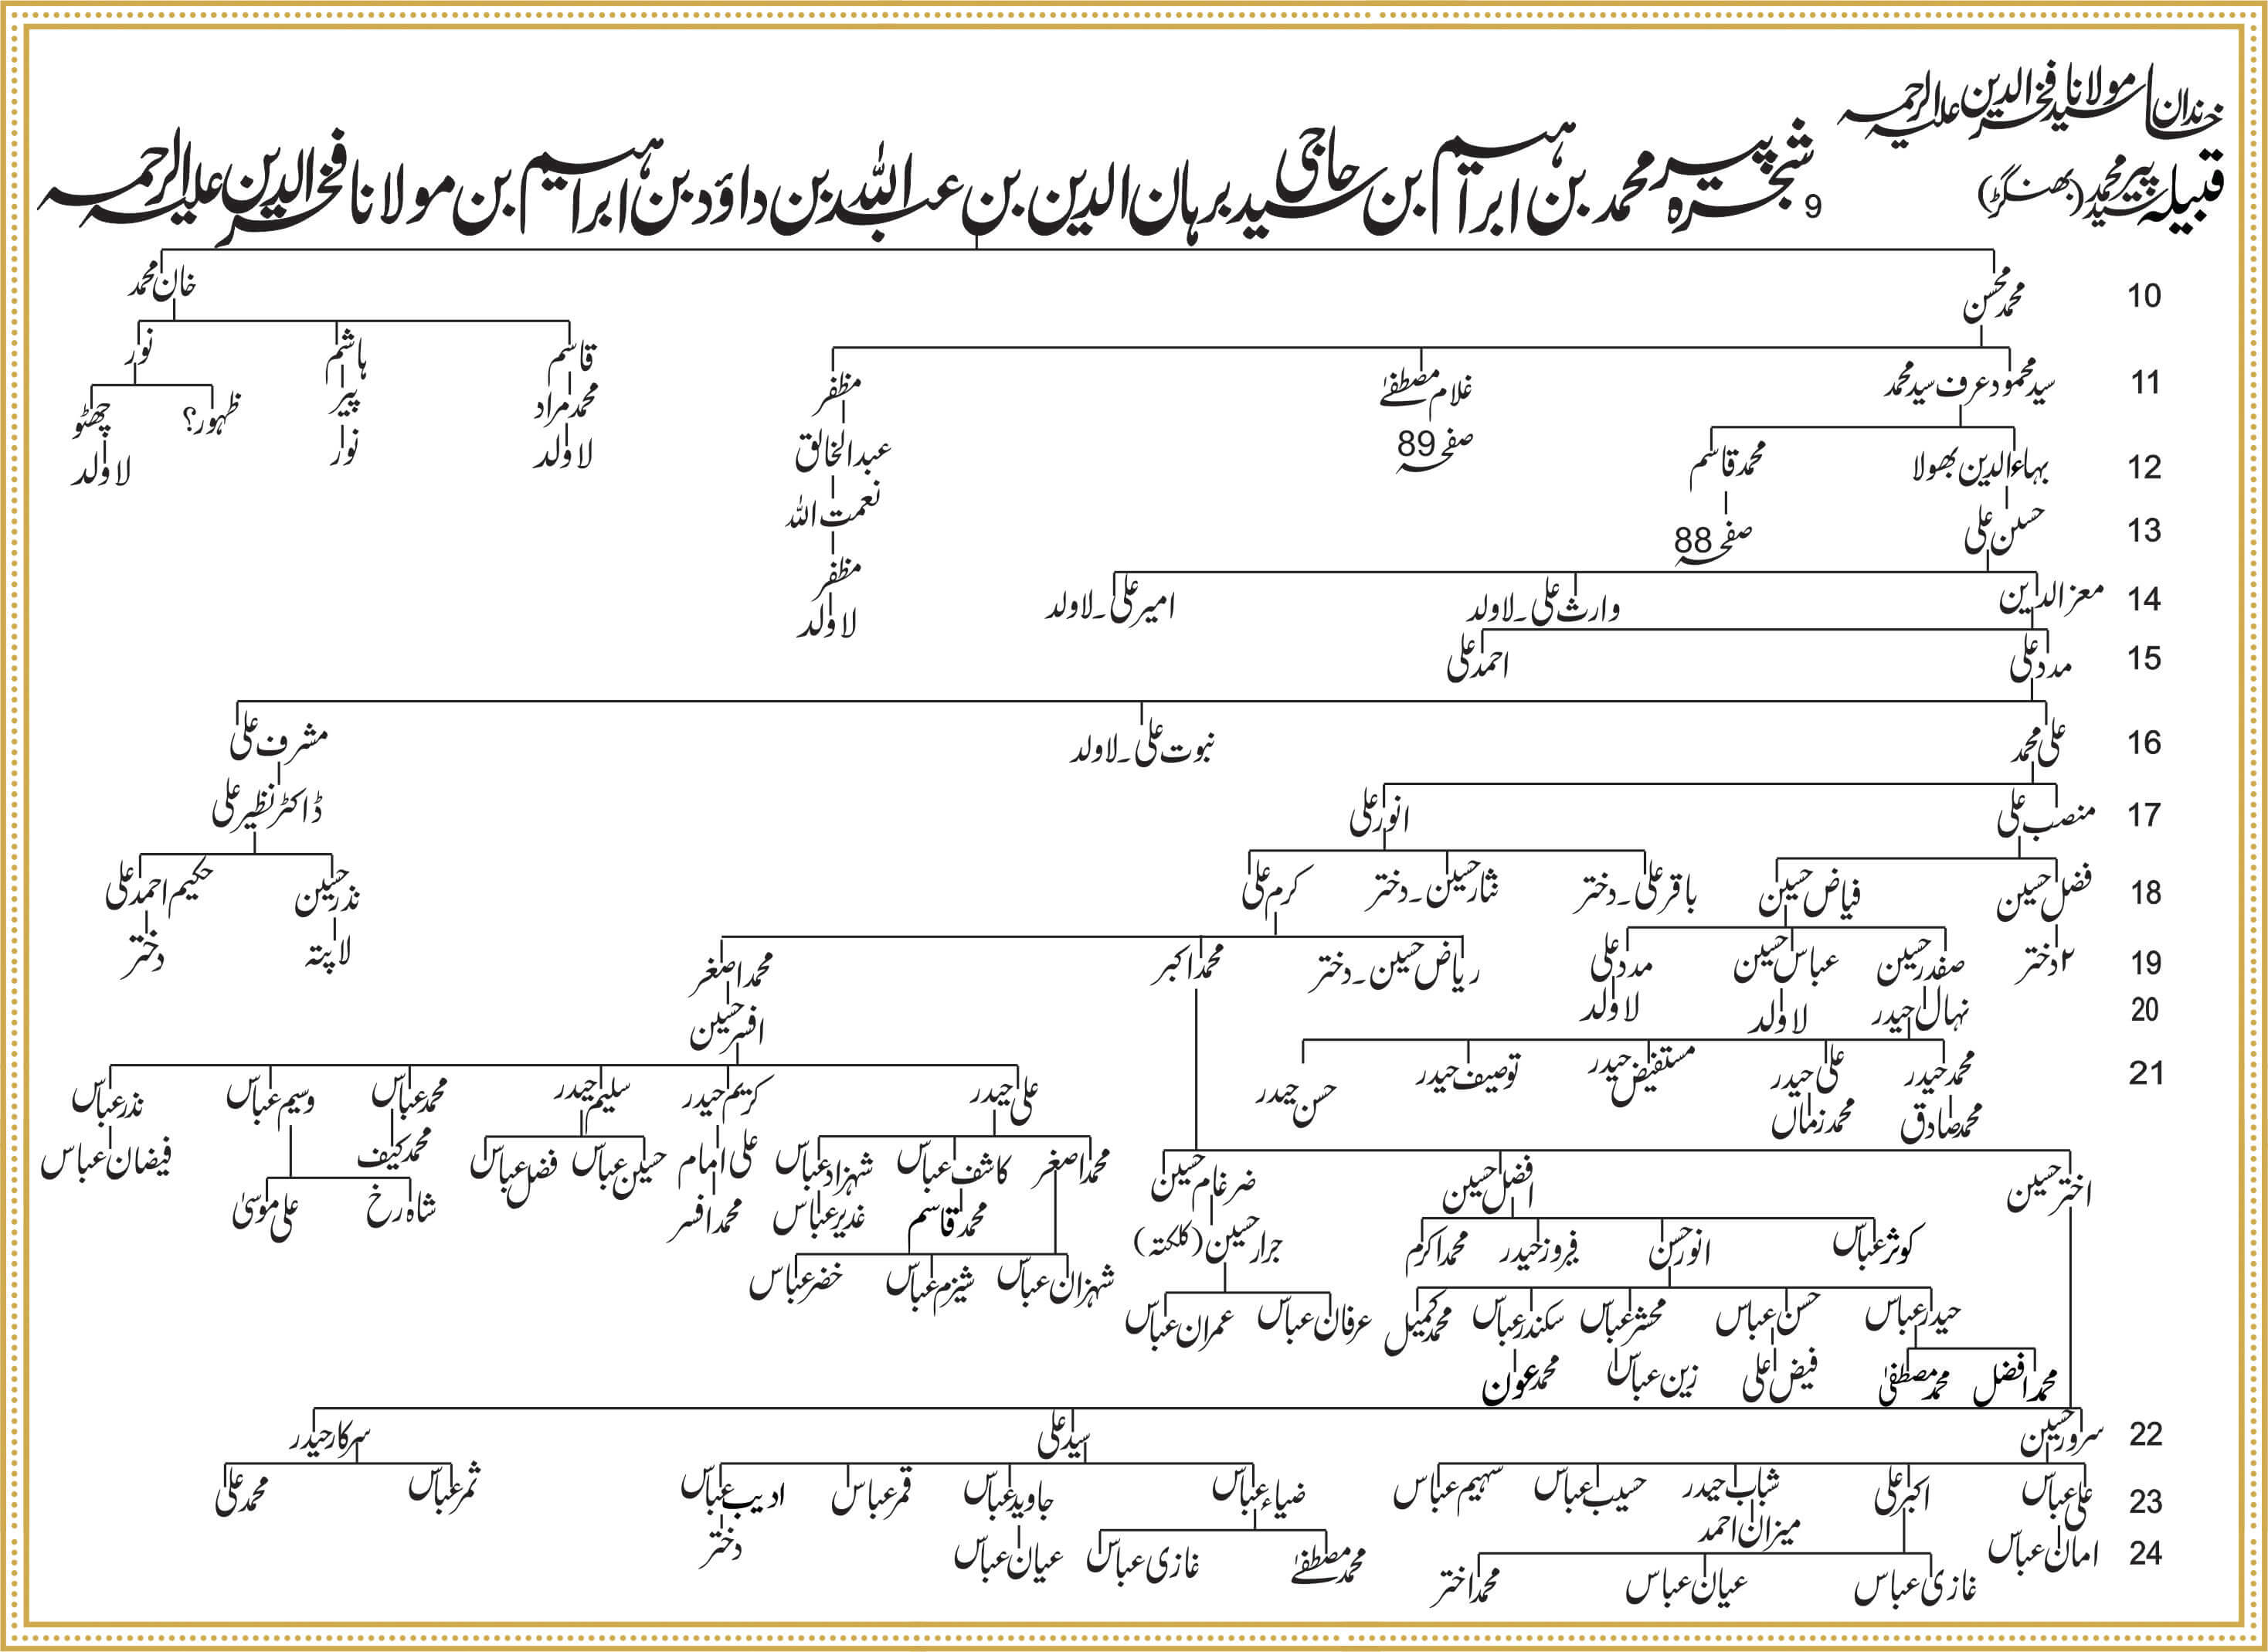 خاندان مولانا سید فخرالدین علیہ الرحمہ
قبیلہ سید پیر محمد (بھنگڑ)
9 شجرہ پیر محمد بن ابراہیم بن حاجی سید برہان الدین بن عبداللہ بن داؤد بن ابراہیم بن مولانا فخرالدین علیہ الرحمہ
10 محمد محسن خان محمد
11 سید محمود عرف سید محمد غلام مصطفےٰ مظفر قاسم ہاشم نور
محمد مراد پیر ظہور؟ چھٹو
12 بہاءالدین بھولا محمد قاسم صفحہ 89 عبدالخالق لاولد نور لاولد
13 حسن علی صفحہ 88 نعمت اللہ
مظفر
14 معزالدین وارث علی۔لاولد امیر علی۔لاولد لاولد
15 مدد علی احمد علی
16 علی محمد نبوت علی۔لاولد مشرف علی
17 منصب علی انور علی ڈاکٹر نظیر علی
18 فضل حسین فیاض حسین باقر علی۔دختر نثار حسین۔دختر کرم علی نذر حسین حکیم احمد علی
19 ۲ دختر صفدر حسین عباس حسین مدد علی ریاض حسین۔دختر محمد اکبر محمد اصغر لاپتہ دختر
20 نہال حیدر لاولد لاولد افسر حسین
21 محمد حیدر علی حیدر مستفیض حیدر توصیف حیدر حسن حیدر علی حیدر کریم حیدر سلیم حیدر محمد عباس وسیم عباس نذر عباس
محمد صادق محمد زماں
محمد اصغر کاشف عباس شہزاد عباس علی امام حسین عباس فضل عباس محمد کیف فیضان عباس
اختر حسین افضل حسین ضرغام حسین
محمد قاسم غدیر عباس محمد افسر شاہ رخ علی موسیٰ
کوثر عباس انور حسن فیروز حیدر محمد اکرم جرار حسین (کلکتہ)
شہزان عباس شیزم عباس خضر عباس
حیدر عباس حسن عباس محشر عباس سکندر عباس محمد کمیل عرفان عباس عمران عباس
محمد افضل محمد مصطفیٰ فیض علی زین عباس محمد عون
22 سرور حسین سید علی سرکار حیدر
23 علی عباس اکبر علی شباب حیدر حسیب عباس سہیم عباس ضیاء عباس جاوید عباس قمر عباس ادیب عباس ثمر عباس محمد علی
میزان احمد
24 امان عباس محمد مصطفےٰ غازی عباس عیان عباس دختر
غازی عباس عیان عباس محمد اختر